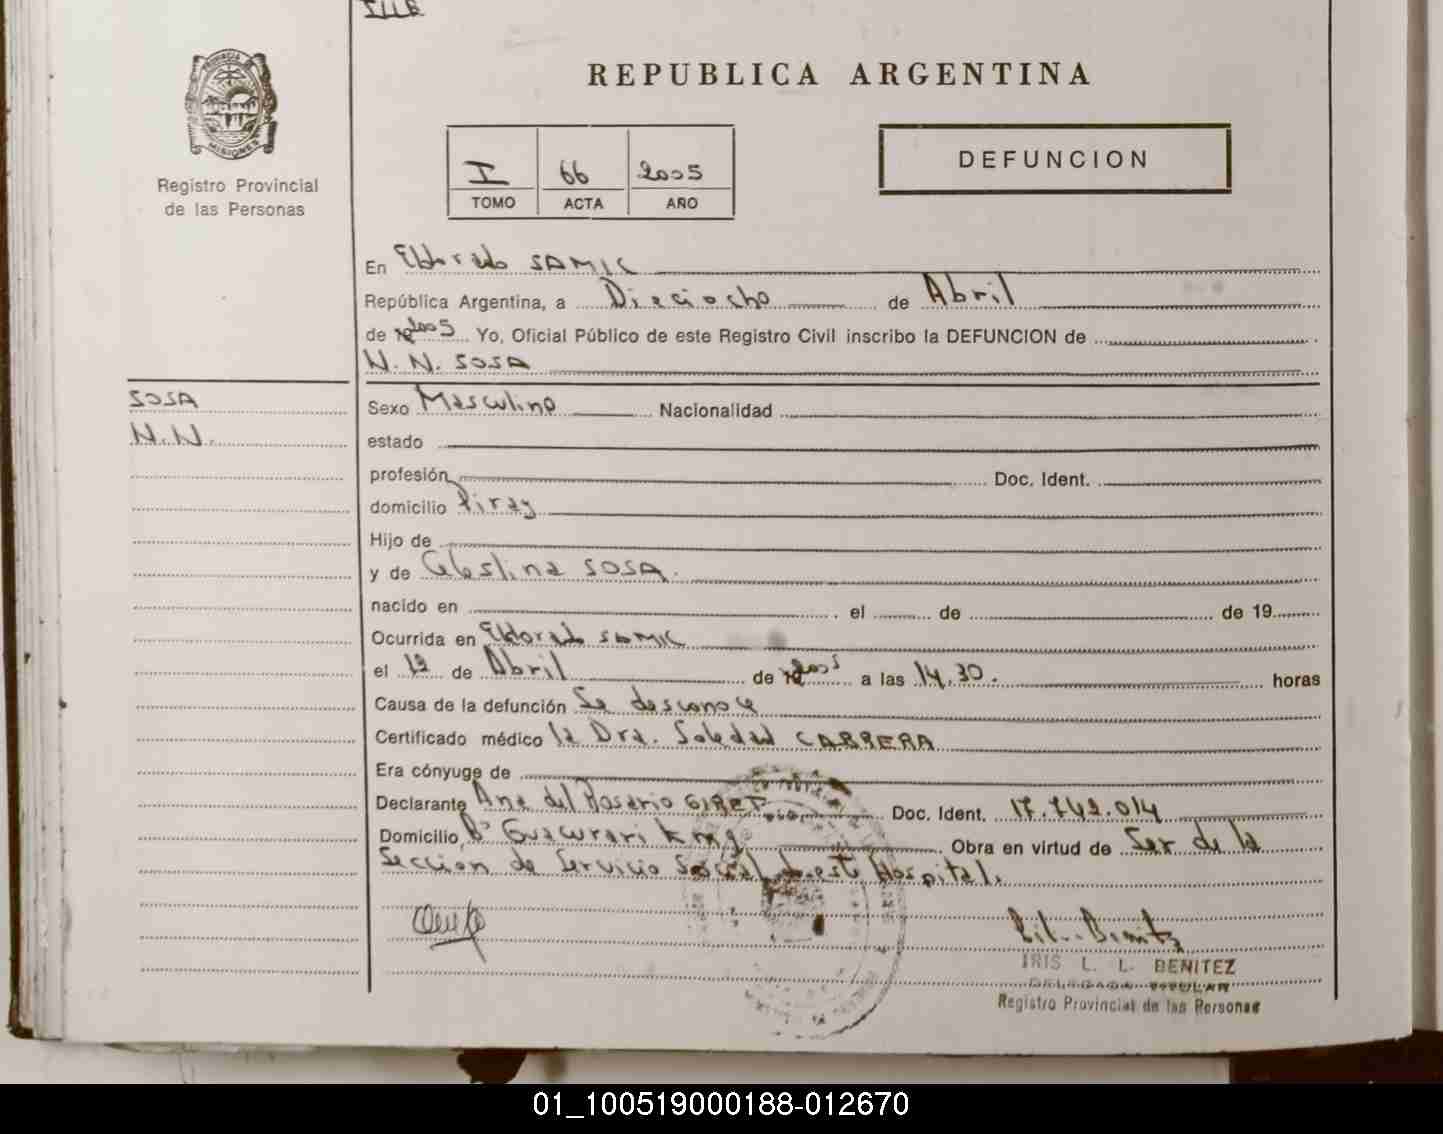 REPUBLICA ARGENTINA
PROVINCIA DE
MISIONES
Registro Provincial
de las Personas
I 66 2005
TOMO ACTA AÑO
DEFUNCION
En Eldorado SAMIC
República Argentina, a Dieciocho de Abril
de 2005 Yo, Oficial Público de este Registro Civil inscribo la DEFUNCION de
N.N. SOSA
SOSA
N.N.
Sexo Masculino Nacionalidad
estado
profesión Doc. Ident.
domicilio Piray
Hijo de
y de Celestina SOSA.
nacido en el de de 19
Ocurrida en Eldorado SAMIC
el de Abril de 2005 a las 14.30. horas
Causa de la defunción Se desconoce
Certificado médico la Dra. Soledad CABRERA
Era cónyuge de
Declarante Ana del Rosario Doc. Ident. 17.742.014
Domicilio Bº Guacurari Obra en virtud de Ser de la
Seccion de Servicio Social de este Hospital.
IRIS L. L. BENITEZ
DELEGADA TITULAR
Registro Provincial de las Personas
01_100519000188-012670